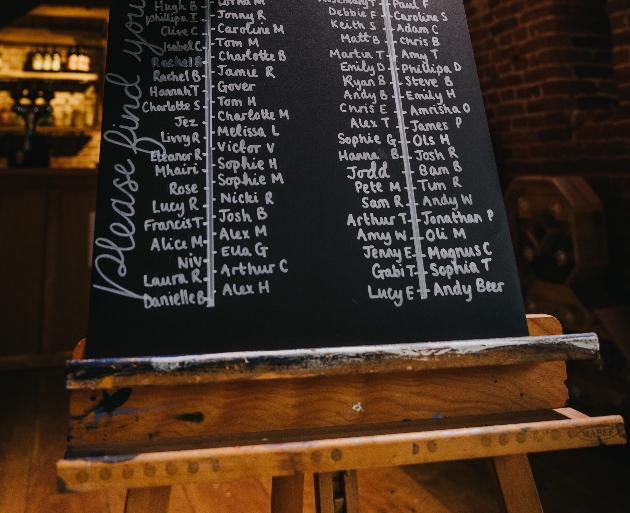 please find you
Hugh B
Phillipa I
Clive C
Isabel C
Rachel B
Rachel B
Hannah T
Charlotte S
Jez
Livvy R
Eleanor R
Mhairi
Rose
Lucy R
Francis T
Alice M
Niv
Laura R
Danielle B
Lorna M
Jonny R
Caroline M
Tom M
Charlotte B
Jamie R
Gover
Tom H
Charlotte M
Melissa L
Victor V
Sophie H
Sophie M
Nicki R
Josh B
Alex M
Eva G
Arthur C
Alex H
Rosemary T
Debbie F
Keith S
Matt B
Martin T
Emily D
Ryan B
Andy B
Chris E
Alex T
Sophie G
Hanna B
Jodd
Pete M
Sam R
Arthur T
Amy W
Jenny E
Gabi T
Lucy E
Paul F
Caroline S
Adam C
Chris B
Amy T
Phillipa D
Steve B
Emily H
Amrisha O
James P
Ols H
Josh R
Bam B
Tum R
Andy W
Jonathan P
Oli M
Magnus C
Sophia T
Andy Beer
MABEF